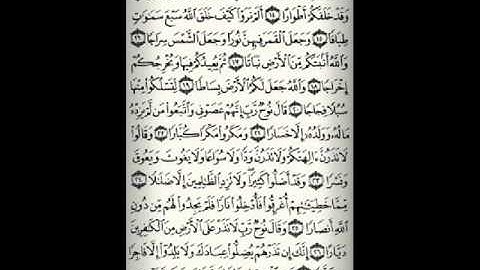 وَقَدْ خَلَقَكُمْ أَطْوَارًا ١٤ أَلَمْ تَرَوْا كَيْفَ خَلَقَ اللَّهُ سَبْعَ سَمَاوَاتٍ
طِبَاقًا ١٥ وَجَعَلَ الْقَمَرَ فِيهِنَّ نُورًا وَجَعَلَ الشَّمْسَ سِرَاجًا ١٦
وَاللَّهُ أَنْبَتَكُمْ مِنَ الْأَرْضِ نَبَاتًا ١٧ ثُمَّ يُعِيدُكُمْ فِيهَا وَيُخْرِجُكُمْ
إِخْرَاجًا ١٨ وَاللَّهُ جَعَلَ لَكُمُ الْأَرْضَ بِسَاطًا ١٩ لِتَسْلُكُوا مِنْهَا
سُبُلًا فِجَاجًا ٢٠ قَالَ نُوحٌ رَبِّ إِنَّهُمْ عَصَوْنِي وَاتَّبَعُوا مَنْ لَمْ يَزِدْهُ
مَالُهُ وَوَلَدُهُ إِلَّا خَسَارًا ٢١ وَمَكَرُوا مَكْرًا كُبَّارًا ٢٢ وَقَالُوا
لَا تَذَرُنَّ آلِهَتَكُمْ وَلَا تَذَرُنَّ وَدًّا وَلَا سُوَاعًا وَلَا يَغُوثَ وَيَعُوقَ
وَنَسْرًا ٢٣ وَقَدْ أَضَلُّوا كَثِيرًا وَلَا تَزِدِ الظَّالِمِينَ إِلَّا ضَلَالًا ٢٤
مِمَّا خَطِيئَاتِهِمْ أُغْرِقُوا فَأُدْخِلُوا نَارًا فَلَمْ يَجِدُوا لَهُمْ مِنْ دُونِ
اللَّهِ أَنْصَارًا ٢٥ وَقَالَ نُوحٌ رَبِّ لَا تَذَرْ عَلَى الْأَرْضِ مِنَ الْكَافِرِينَ
دَيَّارًا ٢٦ إِنَّكَ إِنْ تَذَرْهُمْ يُضِلُّوا عِبَادَكَ وَلَا يَلِدُوا إِلَّا فَاجِرًا